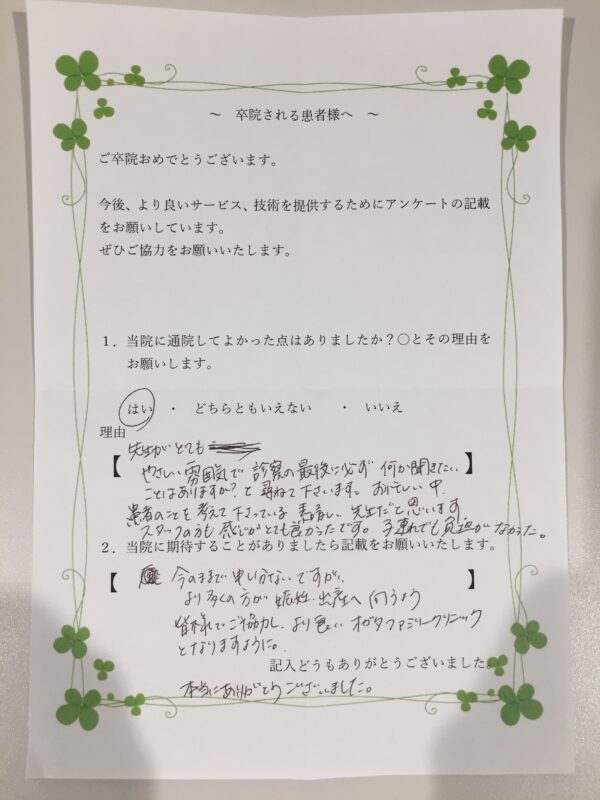 ～ 卒院される患者様へ ～
ご卒院おめでとうございます。
今後、より良いサービス、技術を提供するためにアンケートの記載
をお願いしています。
ぜひご協力をお願いいたします。
1．当院に通院してよかった点はありましたか？〇とその理由を
お願いします。
はい ・ どちらともいえない ・ いいえ
理由
先生がとても
【 やさしい雰囲気で 診察の最後に必ず 何か聞きたい 】
ことはありますか？と尋ねて下さいます。お忙しい中
患者のことを考えて下さっている 素晴しい先生だと思います
スタッフの方も 感じがとても良かったです。子連れでも負担がなかった。
2．当院に期待することがありましたら記載をお願いいたします。
【 今のままで申し分ないですが、 】
より多くの方が 妊娠、出産へ向うよう
皆様でご協力し、より良い オガタファミリークリニック
となりますように。
記入どうもありがとうございました。
本当にありがとうございました。